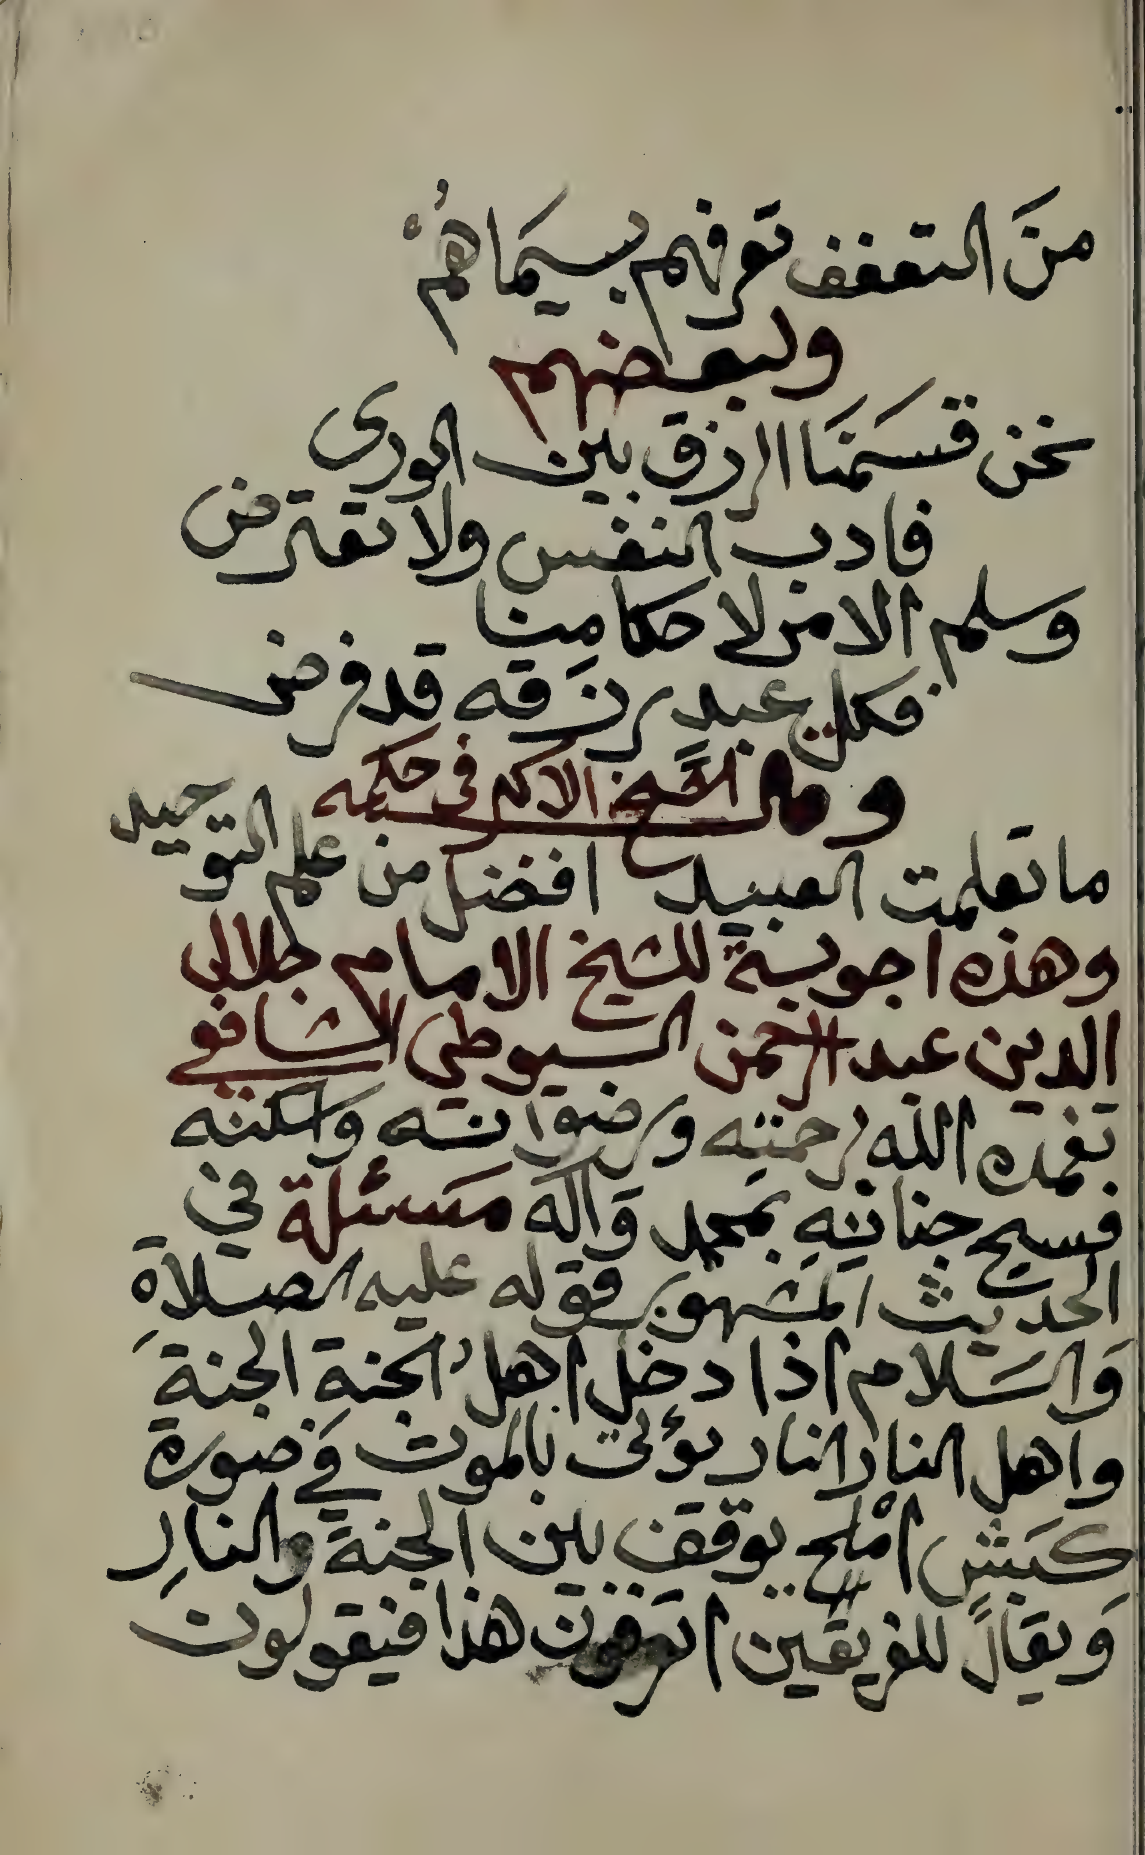 منَ التعفف تعرفهم بسيمَاهُمْ
ولبعضهم
نحن قسَمْنَا الرزق بين الورى
فادب النفس ولا تعترض
وسلم الامر لاحكامِنا
فكل عبد رزقه قد فرض
وقال الشَّيخ الاكبر في حكمه
ما تعلمت العبيد افضل من علم التوحيد
وهذه اجوبة للشيخ الامام جلال
الدين عبد الرحمن السيوطي الشافعي
تغمده الله برحمتِه ورضوانه واسكنه
فسيح جنانِهِ بمحمد وَاله مَسئلة في
الحديث المشهور قوله عليه الصلاةَ
وَالسَّلام اذا دخل اهلُ الجنةِ الجنة
واهل النار النار يؤتى بالموت في صورة
كبَش امْلح يوقف بين الجنة والنارِ
وَيقالَ للفريقين اتعرفون هذا فيقولون